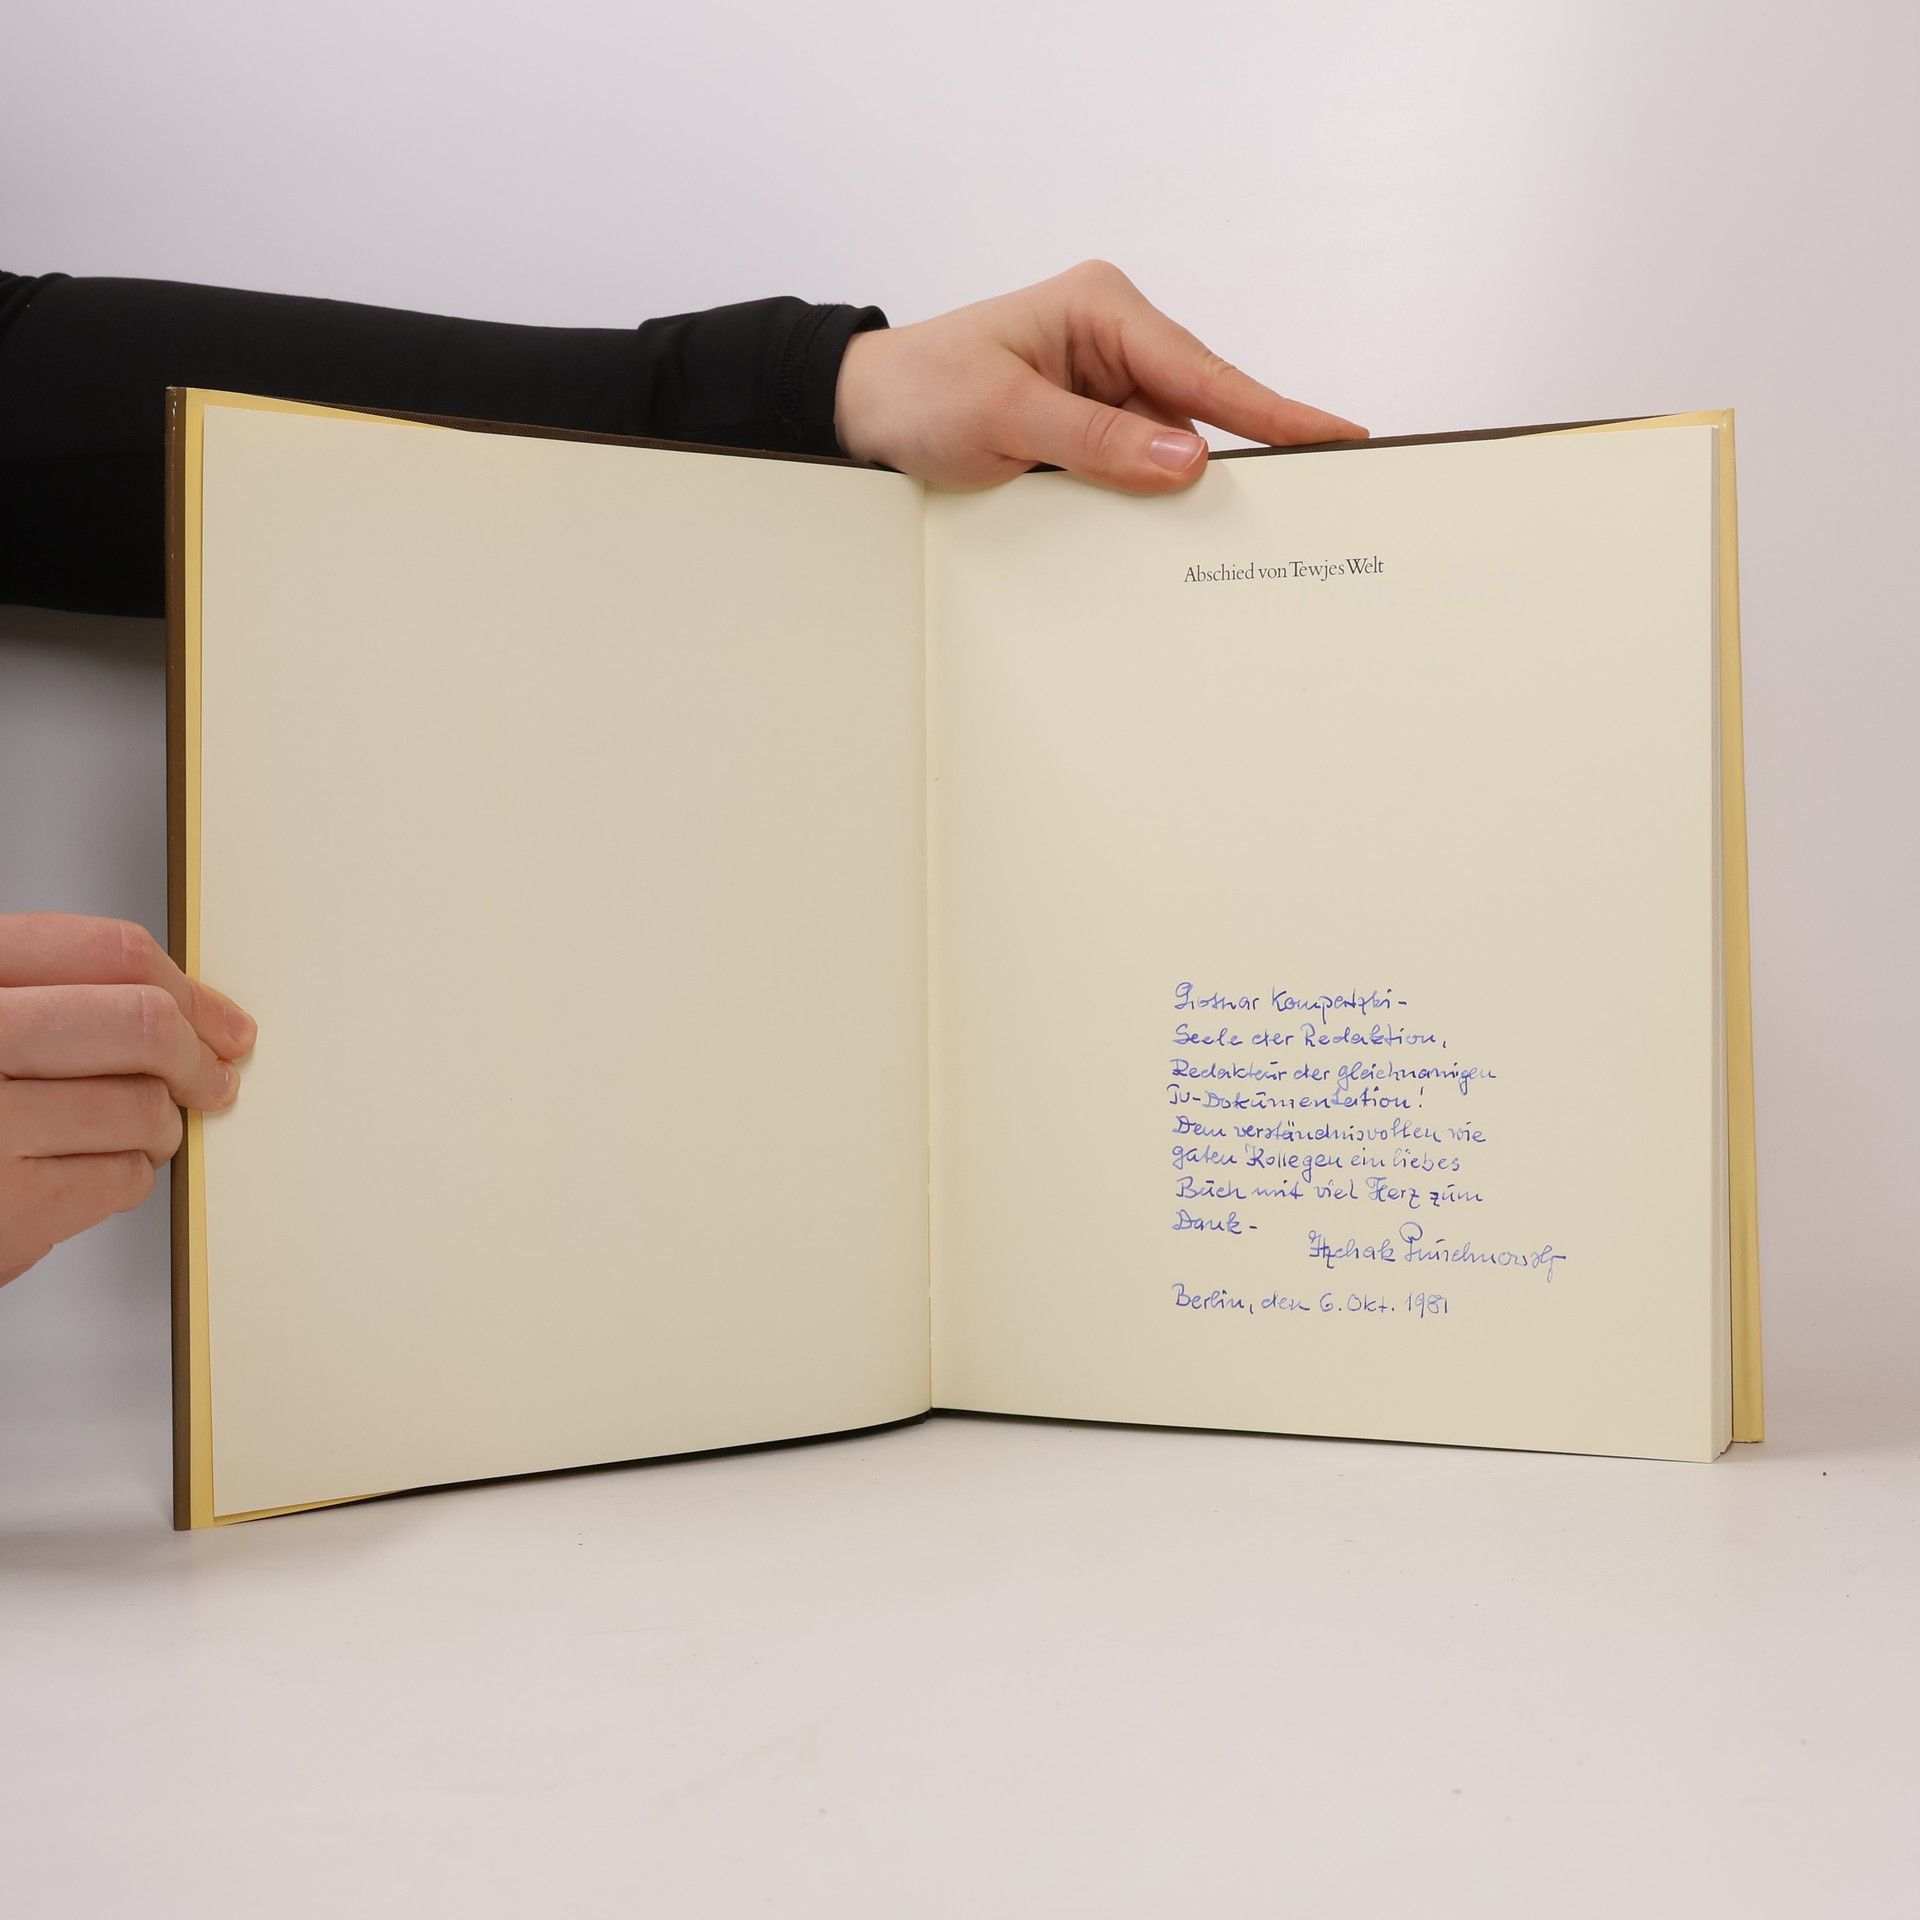 Abschied von Tewjes Welt
Lothar Kompatzki -
Seele der Redaktion,
Redakteur der gleichnamigen
TV-Dokumentation!
Dem verständnisvollen wie
guten Kollegen ein liebes
Buch mit viel Herz zum
Dank -
Itzchak Pruschnowski
Berlin, den 6. Okt. 1981